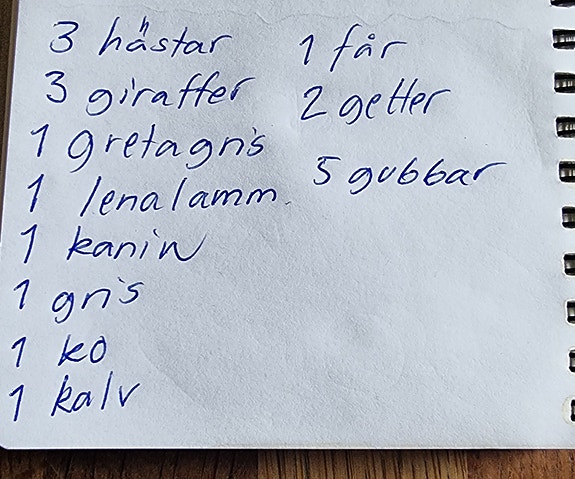 3 hästar
3 giraffer
1 gretagris
1 lenalamm.
1 kanin
1 gris
1 ko
1 kalv
1 får
2 getter
5 gubbar